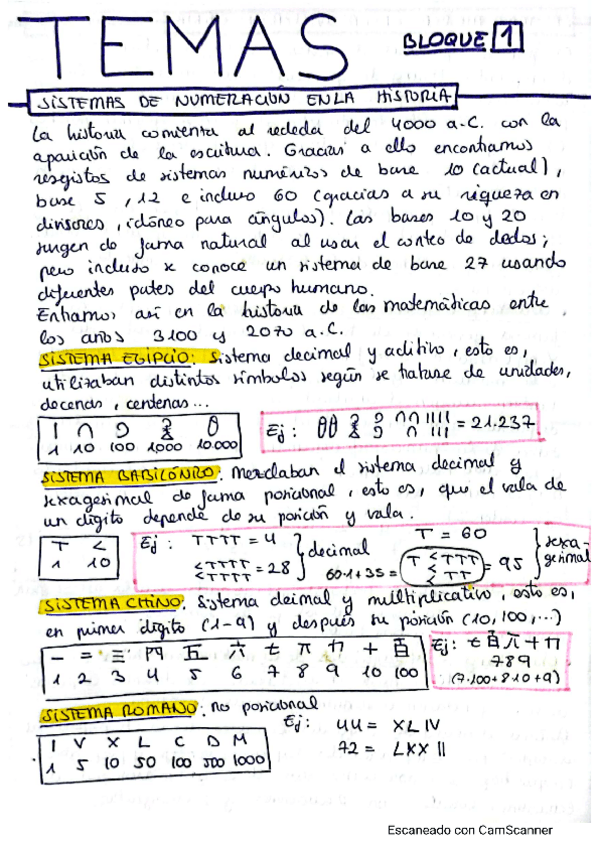 TEMAS BLOQUE 1
SISTEMAS DE NUMERACIÓN EN LA HISTORIA
La historia comienza al rededor del 4000 a.C. con la
aparición de la escritura. Gracias a ello encontramos
registos de sistemas numéricos de base 10 (actual),
base 5, 12 e incluso 60 (gracias a su riqueza en
divisores, idóneo para ángulos). Las bases 10 y 20
surgen de forma natural al usar el conteo de dedos;
pero incluso se conoce un sistema de base 27 usando
diferentes partes del cuerpo humano.
Entramos así en la historia de las matemáticas entre
los años 3100 y 2070 a.C.
SISTEMA EGIPCIO: Sistema decimal y aditivo, esto es,
utilizaban distintos símbolos según se tratase de unidades,
decenas, centenas...
1 10 100 1,000 10.000
Ej: = 21.237
SISTEMA BABILÓNICO: Mezclaban el sistema decimal y
sexagesimal de forma posicional, esto es, que el valor de
un dígito depende de su posición y valor.
T <
1 10
Ej: TTTT = 4
<TTTT
<TTTT = 28
decimal
T = 60
60·1+35 = T <TTT < < TT = 95
sexagesimal
SISTEMA CHINO: Sistema decimal y multiplicativo, esto es,
en primer dígito (1-9) y después su posición (10, 100, ...)
一 = 三 四 五 六 七 八 九 十 百
1 2 3 4 5 6 7 8 9 10 100
Ej: 七百八十九
789
(7·100+8·10+9)
SISTEMA ROMANO: no posicional
I V X L C D M
1 5 10 50 100 500 1000
Ej: 44 = XLIV
72 = LXXII
Escaneado con CamScanner